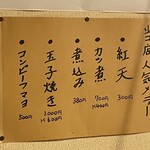 当店人気メニュー
紅天 300円
カツ煮 700円
煮込み 380円
玉子焼き 1000円
コンビーフマヨ 500円